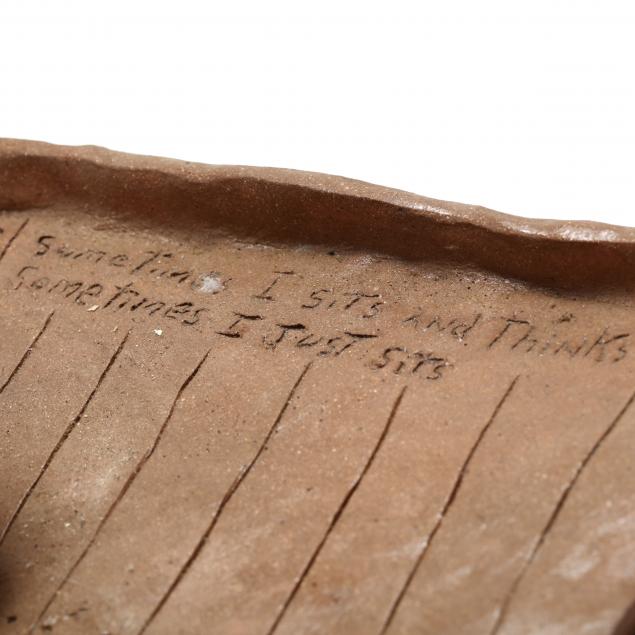 sometimes I sits and Thinks
sometimes I Just sits